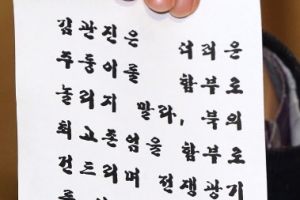 김관진은 더러운
주둥이를 함부로
놀리지 말라, 북의
최고존엄을 함부로
건드리며 전쟁광기
를